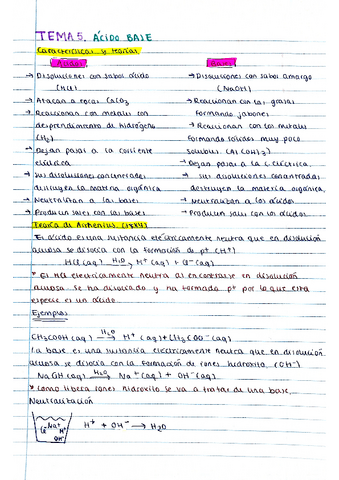 TEMA 5. ÁCIDO BASE
Características y teorías
Ácidos
Bases
→ Disoluciones con sabor ácido
(HCl)
→ Atacan a rocas CaCO3
→ Reaccionan con metales con
desprendimiento de hidrógeno
(H2)
→ Dejan pasar a la corriente
eléctrica
→ Sus disoluciones concentradas
destruyen la materia orgánica
→ Neutralizan a las bases
→ Producen sales con las bases
→ Disoluciones con sabor amargo
(NaOH)
→ Reaccionan con las grasas
formando jabones
→ Reaccionan con los metales
formando sólidos muy poco
solubles (Al(OH)3)
→ Dejan pasar a la c. eléctrica.
→ Sus disoluciones concentradas
destruyen la materia orgánica.
→ Neutralizan a los ácidos
→ Producen sales con los ácidos
Teoría de Arrhenius.
El ácido es una sustancia eléctricamente neutra que en disolución
acuosa se disocia con la formación de pt (H+)
HCl (aq) H2O→ H+ (aq) + Cl- (aq)
* El HCl eléctricamente neutra al encontrarse en disolución
acuosa. Se ha disociado y ha formado pt por lo que esta
especie es un ácido.
Ejemplos
CH3COOH (aq) H2O→ H+ (aq) + CH3COO- (aq)
La base es una sustancia eléctricamente neutra que en disolución
acuosa se disocia con la formación de iones hidroxilo. (OH-)
NaOH (aq) H2O→ Na+ (aq) + OH- (aq)
* Como libera iones hidroxilo se va a tratar de una base.
Neutralización
Cl- Na+
H+
OH-
H+ + OH- → H2O